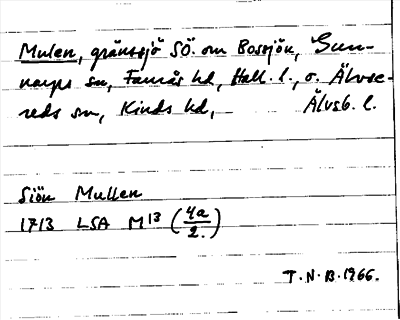 Mulen, gränssjö SÖ. om Bossjön, Gun-
narps sn, Faurås hd, Hall. l., o. Älvse-
reds sn, Kinds hd, Älvsb. l.
Siön Mullen
1713 LSA M13 (4a/2.)
T.N.B. 1966.